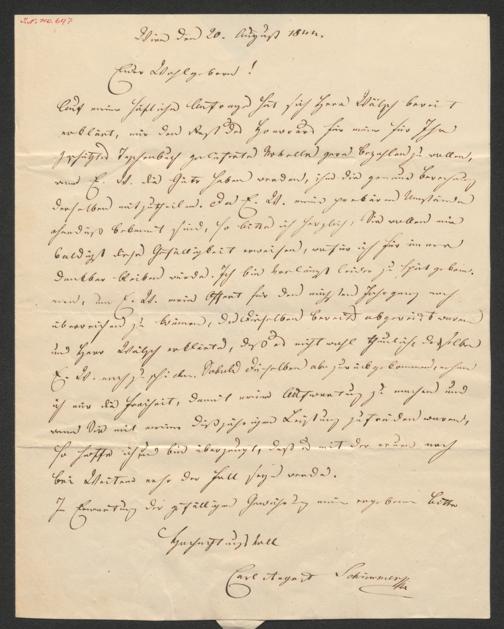 I.N. 140.647
Wien den 20. August 1844.
Euer Wohlgeborn!
Auf meine höfliche Anfrage hat sich Herr Wälsch bereit
erklärt, mir den Rest des Honorars für meine für Ihr
geschätztes Taschenbuch gelieferte Novelle gern bezahlen zu wollen,
wenn E. W. die Güte haben werden, ihm die genaue Berechnung
derselben mitzutheilen. Da E. W. meine Umstände
bekannt sind, so bitte ich herzlich, Sie wollen mir
baldigst diese Gefälligkeit erweisen, wofür ich für immer
dankbar bleiben würde. Ich bin leider zu spät gekom-
men, um E. W. mein für den nächsten Jahrgang noch
überreichen zu können, da dieselben bereits abgereist waren
und Herr Wälsch erklärte, daß es nicht wohl thunlich dasselbe
E. W. nachzuschicken. Sobald dieselben zurückgekommen, nehme
ich mir die Freiheit, damit meine Aufwartung zu machen und
wenn Sie mit meiner dießjährigen Leistung zufrieden waren,
so hoffe ich und bin überzeugt, daß es mit der neuen noch
bei Weitem mehr der Fall seyn werde.
In Erwartung der gefälligen Gewährung meiner ergebenen Bitte
Hochachtungsvoll
Carl August Schimmer